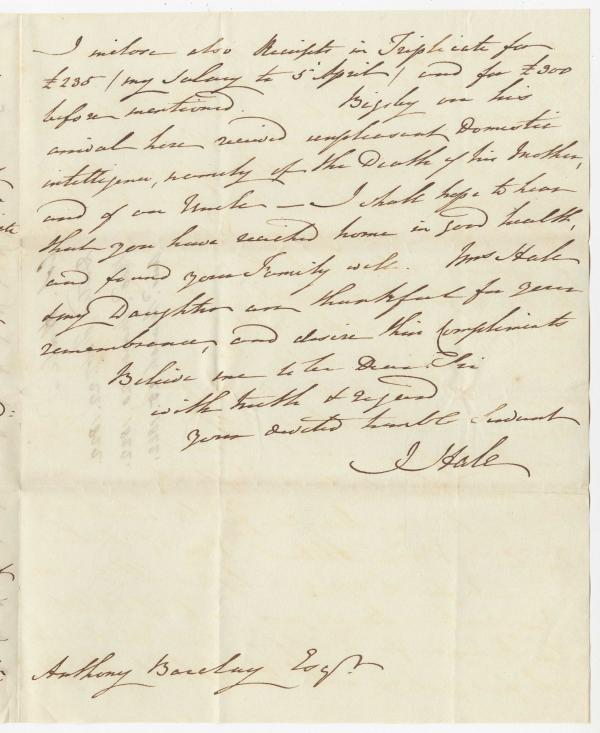 I inclose also Receipts in Triplicate for
£235 / my Salary to 5 April / and for £300
before mentioned. Bigsby on his
arrival here received unpleasant Domestic
intelligence, namely of the Death of his Mother,
and of an Uncle — I shall hope to hear
that you have reached home in good health,
and found your Family well. Mrs Hale
& my Daughters are thankful for your
remembrance, and desire their Compliments
Believe me to be Dear Sir
with truth & regard
your devoted humble Servant
J Hale
Anthony Barclay Esqr.